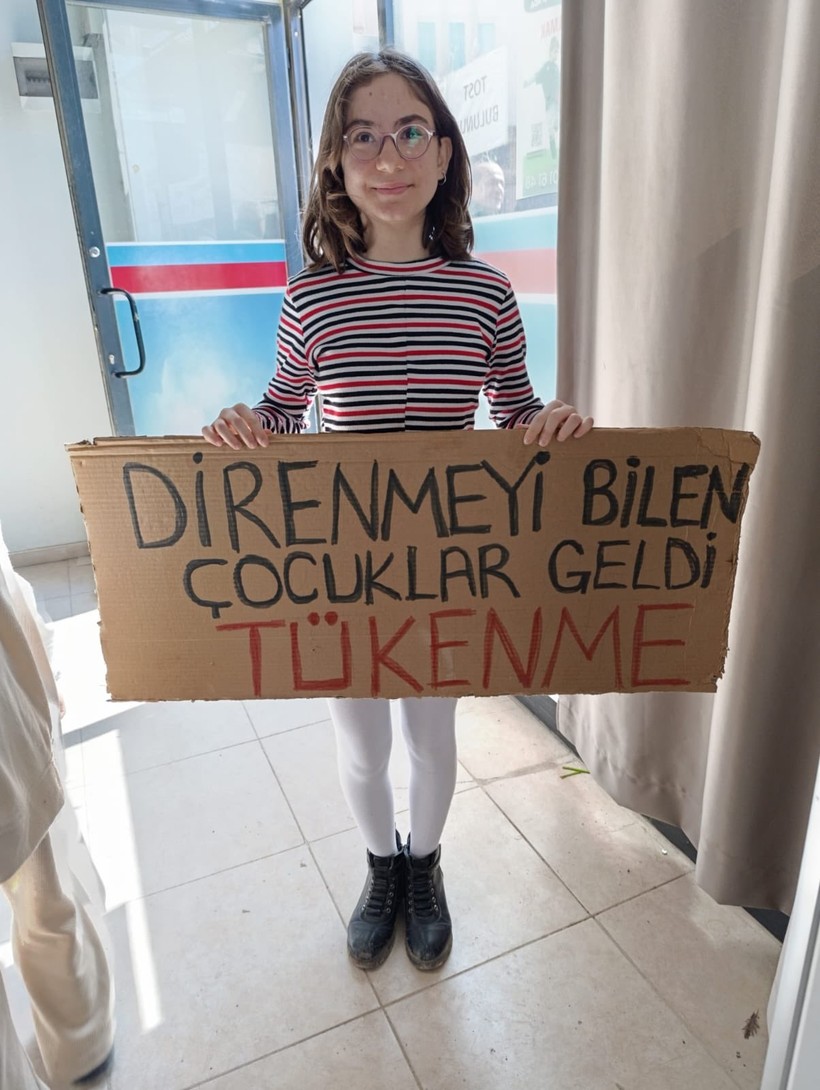 DİRENMEYİ BİLEN
ÇOCUKLAR GELDİ
TÜKENME
TOST